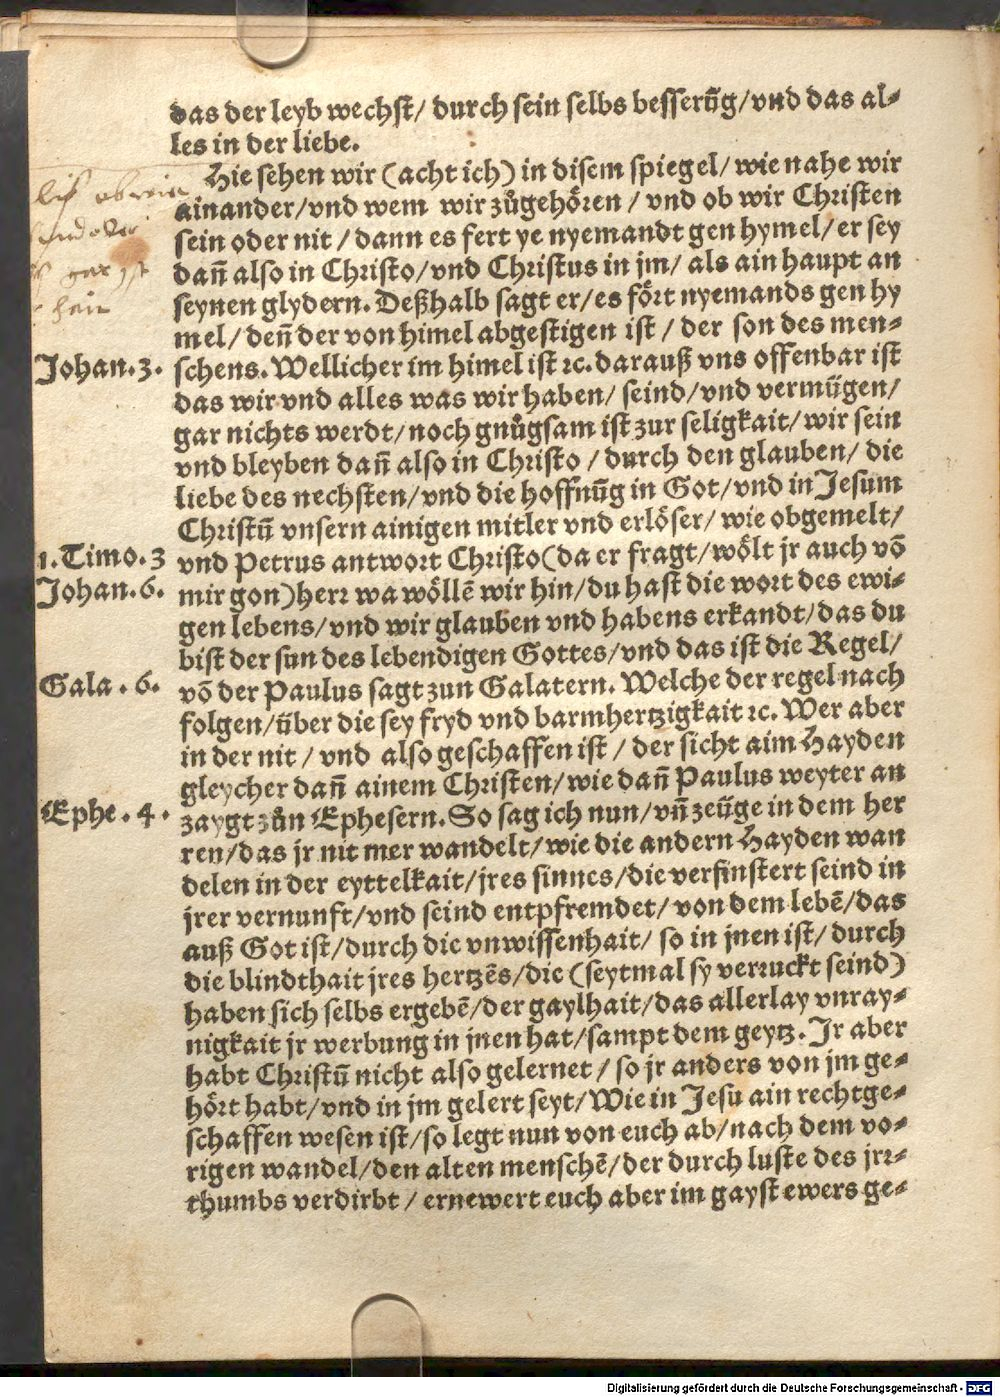 das der leyb wechst/ durch sein selbs besserūg/vnd das al⸗
les in der liebe.
Hie sehen wir (acht ich) in disem spiegel/ wie nahe wir
ainander/vnd wem wir zůgehören / vnd ob wir Christen
sein oder nit / dann es fert ye nyemandt gen hymel/ er sey
dañ also in Christo/vnd Christus in jm/ als ain haupt an
seynen glydern. Deßhalb sagt er/es fört nyemands gen hy
mel/ deñ der von himel abgestigen ist / der son des men⸗
Johan.3. schens. Wellicher im himel ist ꝛc. darauß vns offenbar ist
das wir vnd alles was wir haben/ seind/vnd vermügen/
gar nichts werdt/noch gnůgsam ist zur seligkait/wir sein
vnd bleyben dañ also in Christo / durch den glauben/ die
liebe des nechsten/vnd die hoffnūg in Got/vnd in Jesum
Christū vnsern ainigen mitler vnd erlöser/ wie obgemelt/
1.Timo.3 vnd Petrus antwort Christo(da er fragt/wölt jr auch võ
Johan.6. mir gon)herr wa wöllē wir hin/du hast die wort des ewi⸗
gen lebens/vnd wir glauben vnd habens erkandt/das du
bist der sun des lebendigen Gottes/vnd das ist die Regel/
Gala.6. võ der Paulus sagt zun Galatern. Welche der regel nach
folgen/über die sey fryd vnd barmhertzigkait ꝛc. Wer aber
in der nit / vnd also geschaffen ist / der sicht aim Hayden
gleycher dañ ainem Christen/wie dañ Paulus weyter an
Ephe.4. zaygt zůn Ephesern. So sag ich nun/vñ zeüge in dem her
ren/das jr nit mer wandelt/wie die andern Hayden wan
delen in der eyttelkait/jres sinnes/die verfinstert seind in
jrer vernunft/vnd seind entpfremdet/von dem lebē/das
auß Got ist/durch die vnwissenhait/ so in jnen ist/ durch
die blindthait jres hertzēs/die (seytmal sy verruckt seind)
haben sich selbs ergebē/der gaylhait/das allerlay vnray⸗
nigkait jr werbung in jnen hat/sampt dem geytz. Jr aber
habt Christū nicht also gelernet / so jr anders von jm ge⸗
hört habt/vnd in jm gelert seyt/Wie in Jesu ain rechtge⸗
schaffen wesen ist/so legt nun von euch ab/nach dem vo⸗
rigen wandel/den alten menschē/der durch luste des jrr⸗
thumbs verdirbt / ernewert euch aber im gayst ewers ge⸗
Digitalisierung gefördert durch die Deutsche Forschungsgemeinschaft - DFG